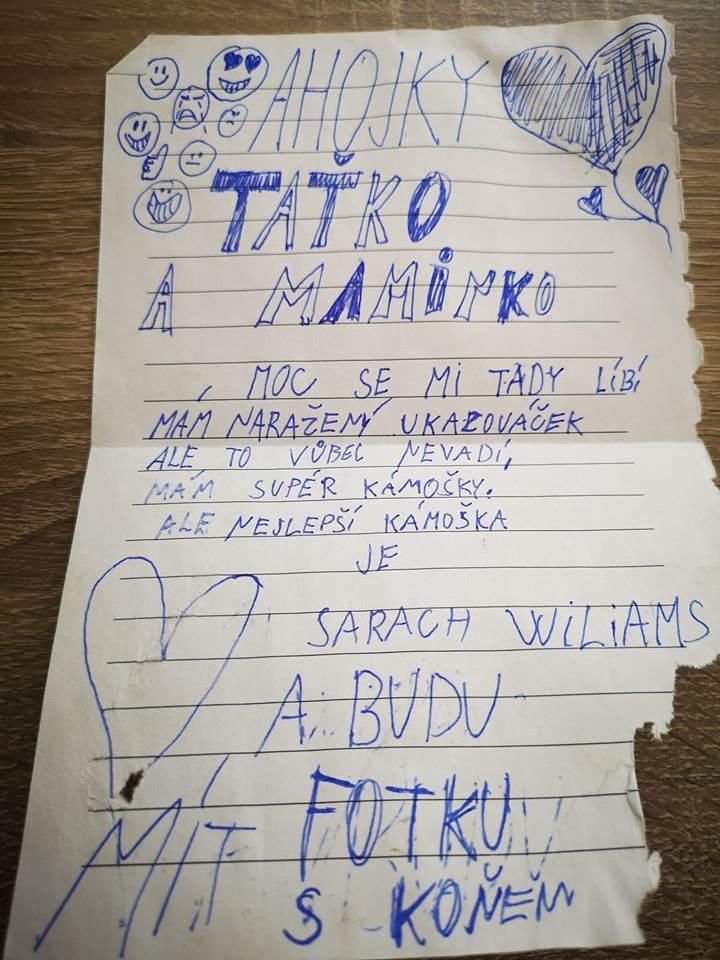 AHOJKY
TAŤKO
A MAMINKO
MOC SE MI TADY LÍBÍ
MÁM NARAŽENÝ UKAZOVÁČEK
ALE TO VŮBEC NEVADÍ,
MÁM SUPÉR KÁMOŠKY.
ALE NEJLEPŠÍ KÁMOŠKA
JE
SARACH WILIAMS
A BUDU
MÍT FOTKU
S KOŇEM